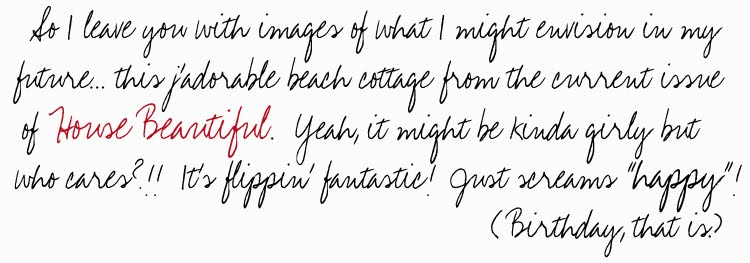 So I leave you with images of what I might envision in my
future... this j'adorable beach cottage from the current issue
of House Beautiful. Yeah, it might be kinda girly but
who cares?!! It's flippin' fantastic! Just screams "happy"!
(Birthday, that is.)